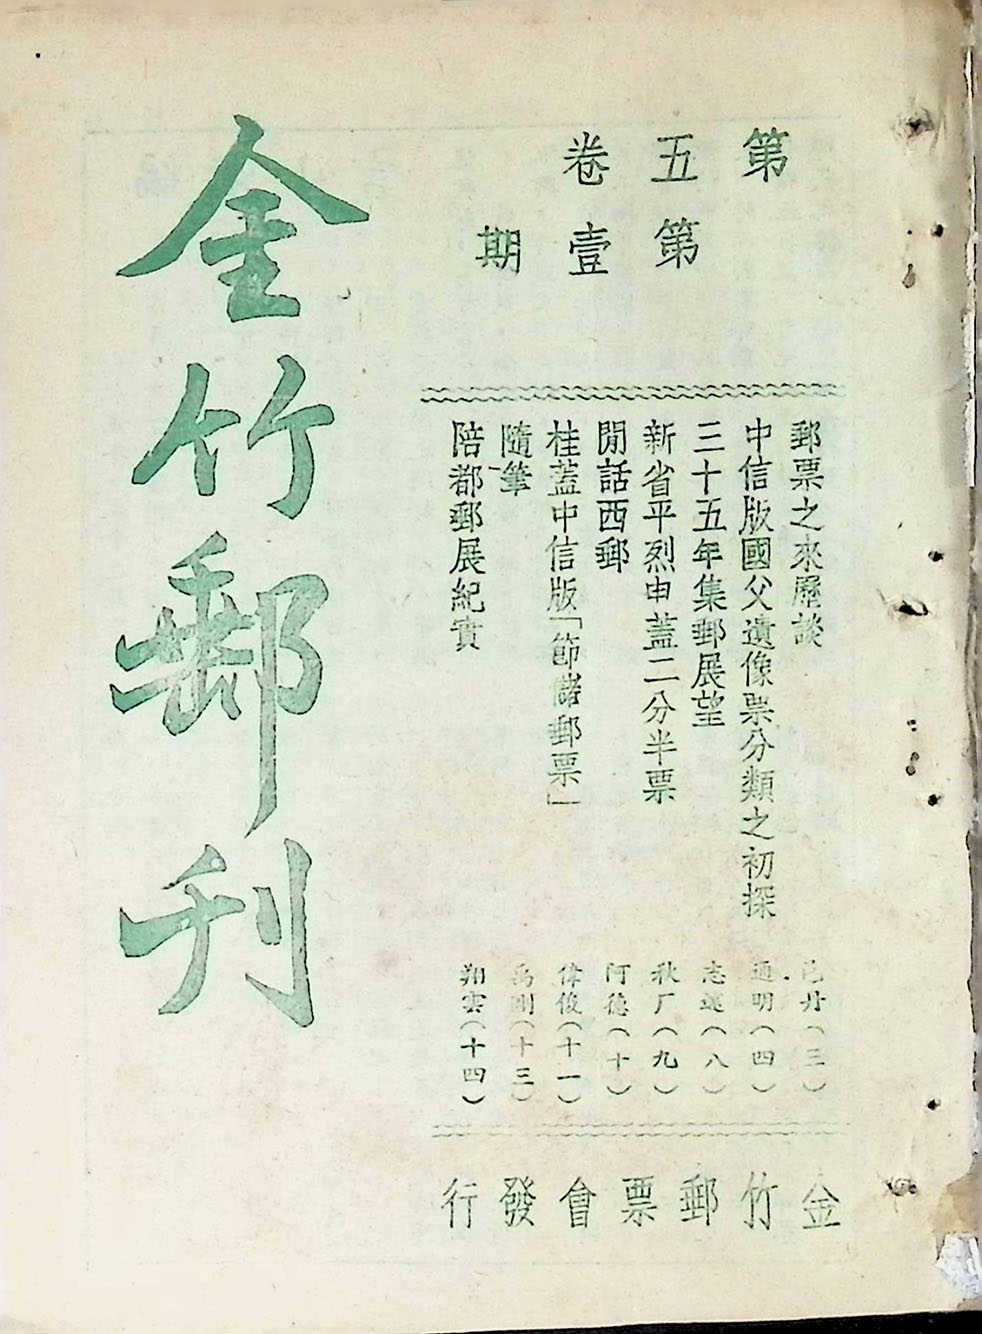 第五卷
第壹期
郵票之來歷談 丹(三)
中信版國父遺像票分類之初探 通明(四)
三十五年集郵展望 志遠(八)
新省平烈申蓋二分半票 秋厂(九)
閒話西郵 阿德(十)
桂蓋中信版「節儲郵票」 偉俊(十一)
隨筆 禹剛(十三)
陪都郵展紀實 翔雲(十四)
金竹郵票會發行
金竹郵刊